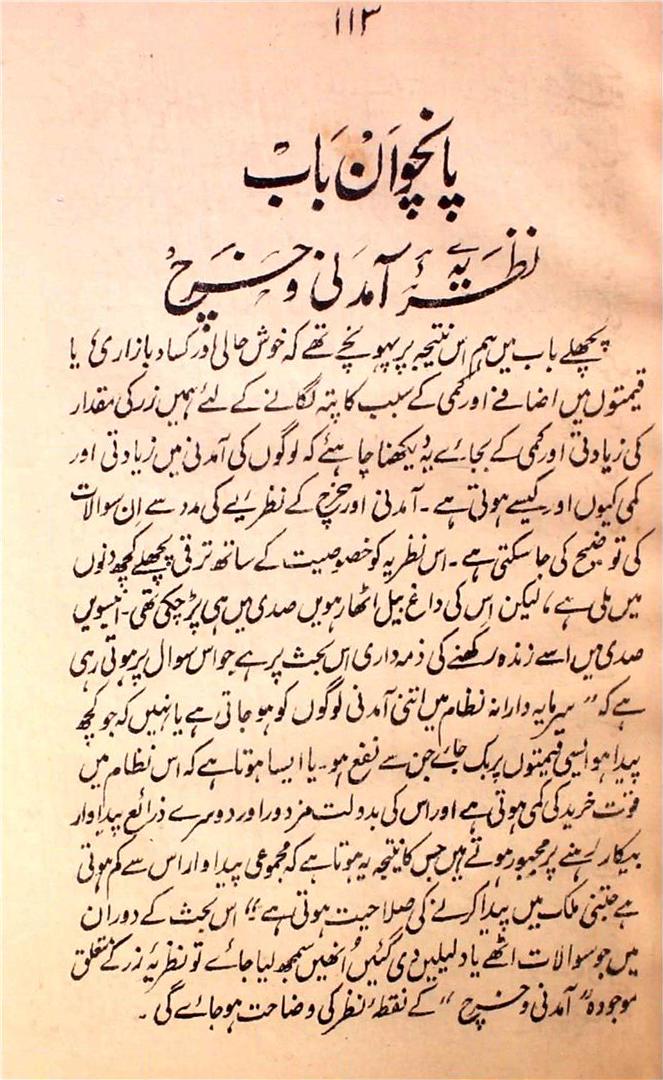 ۱۱۳
پانچواں باب
نظریۂ آمدنی و خرچ
پچھلے باب میں ہم اس نتیجہ پر پہونچے تھے کہ خوش حالی اور کساد بازاری، یا
قیمتوں میں اضافے اور کمی کے سبب کا پتہ لگانے کے لئے ہمیں زر کی مقدار
کی زیادتی اور کمی کے بجائے یہ دیکھنا چاہئے کہ لوگوں کی آمدنی میں زیادتی اور
کمی کیوں اور کیسے ہوتی ہے۔ آمدنی اور خرچ کے نظریے کی مدد سے اِن سوالات
کی توضیح کی جا سکتی ہے۔ اس نظریہ کو خصوصیت کے ساتھ ترقی پچھلے کچھ دنوں
میں ملی ہے، لیکن اس کی داغ بیل اٹھارہویں صدی میں ہی پڑ چکی تھی۔ انیسویں
صدی میں اسے زندہ رکھنے کی ذمہ داری اس بحث پر ہے جو اس سوال پر ہوتی رہی
ہے کہ "سرمایہ دارانہ نظام میں اتنی آمدنی لوگوں کو ہو جاتی ہے یا نہیں کہ جو کچھ
پیدا ہو ایسی قیمتوں پر بک جائے جن سے نفع ہو۔ یا ایسا ہوتا ہے کہ اس نظام میں
قوت خرید کی کمی ہوتی ہے اور اس کی بدولت مزدور اور دوسرے ذرائع پیداوار
بیکار رہنے پر مجبور ہوتے ہیں جس کا نتیجہ یہ ہوتا ہے کہ مجموعی پیداوار اس سے کم ہوتی
ہے جتنی ملک میں پیدا کرنے کی صلاحیت ہوتی ہے" اس بحث کے دوران
میں جو سوالات اٹھے یا دلیلیں دی گئیں اُنھیں سمجھ لیا جائے تو نظریۂ زر کے متعلق
موجودہ "آمدنی و خرچ" کے نقطۂ نظر کی وضاحت ہو جائے گی۔